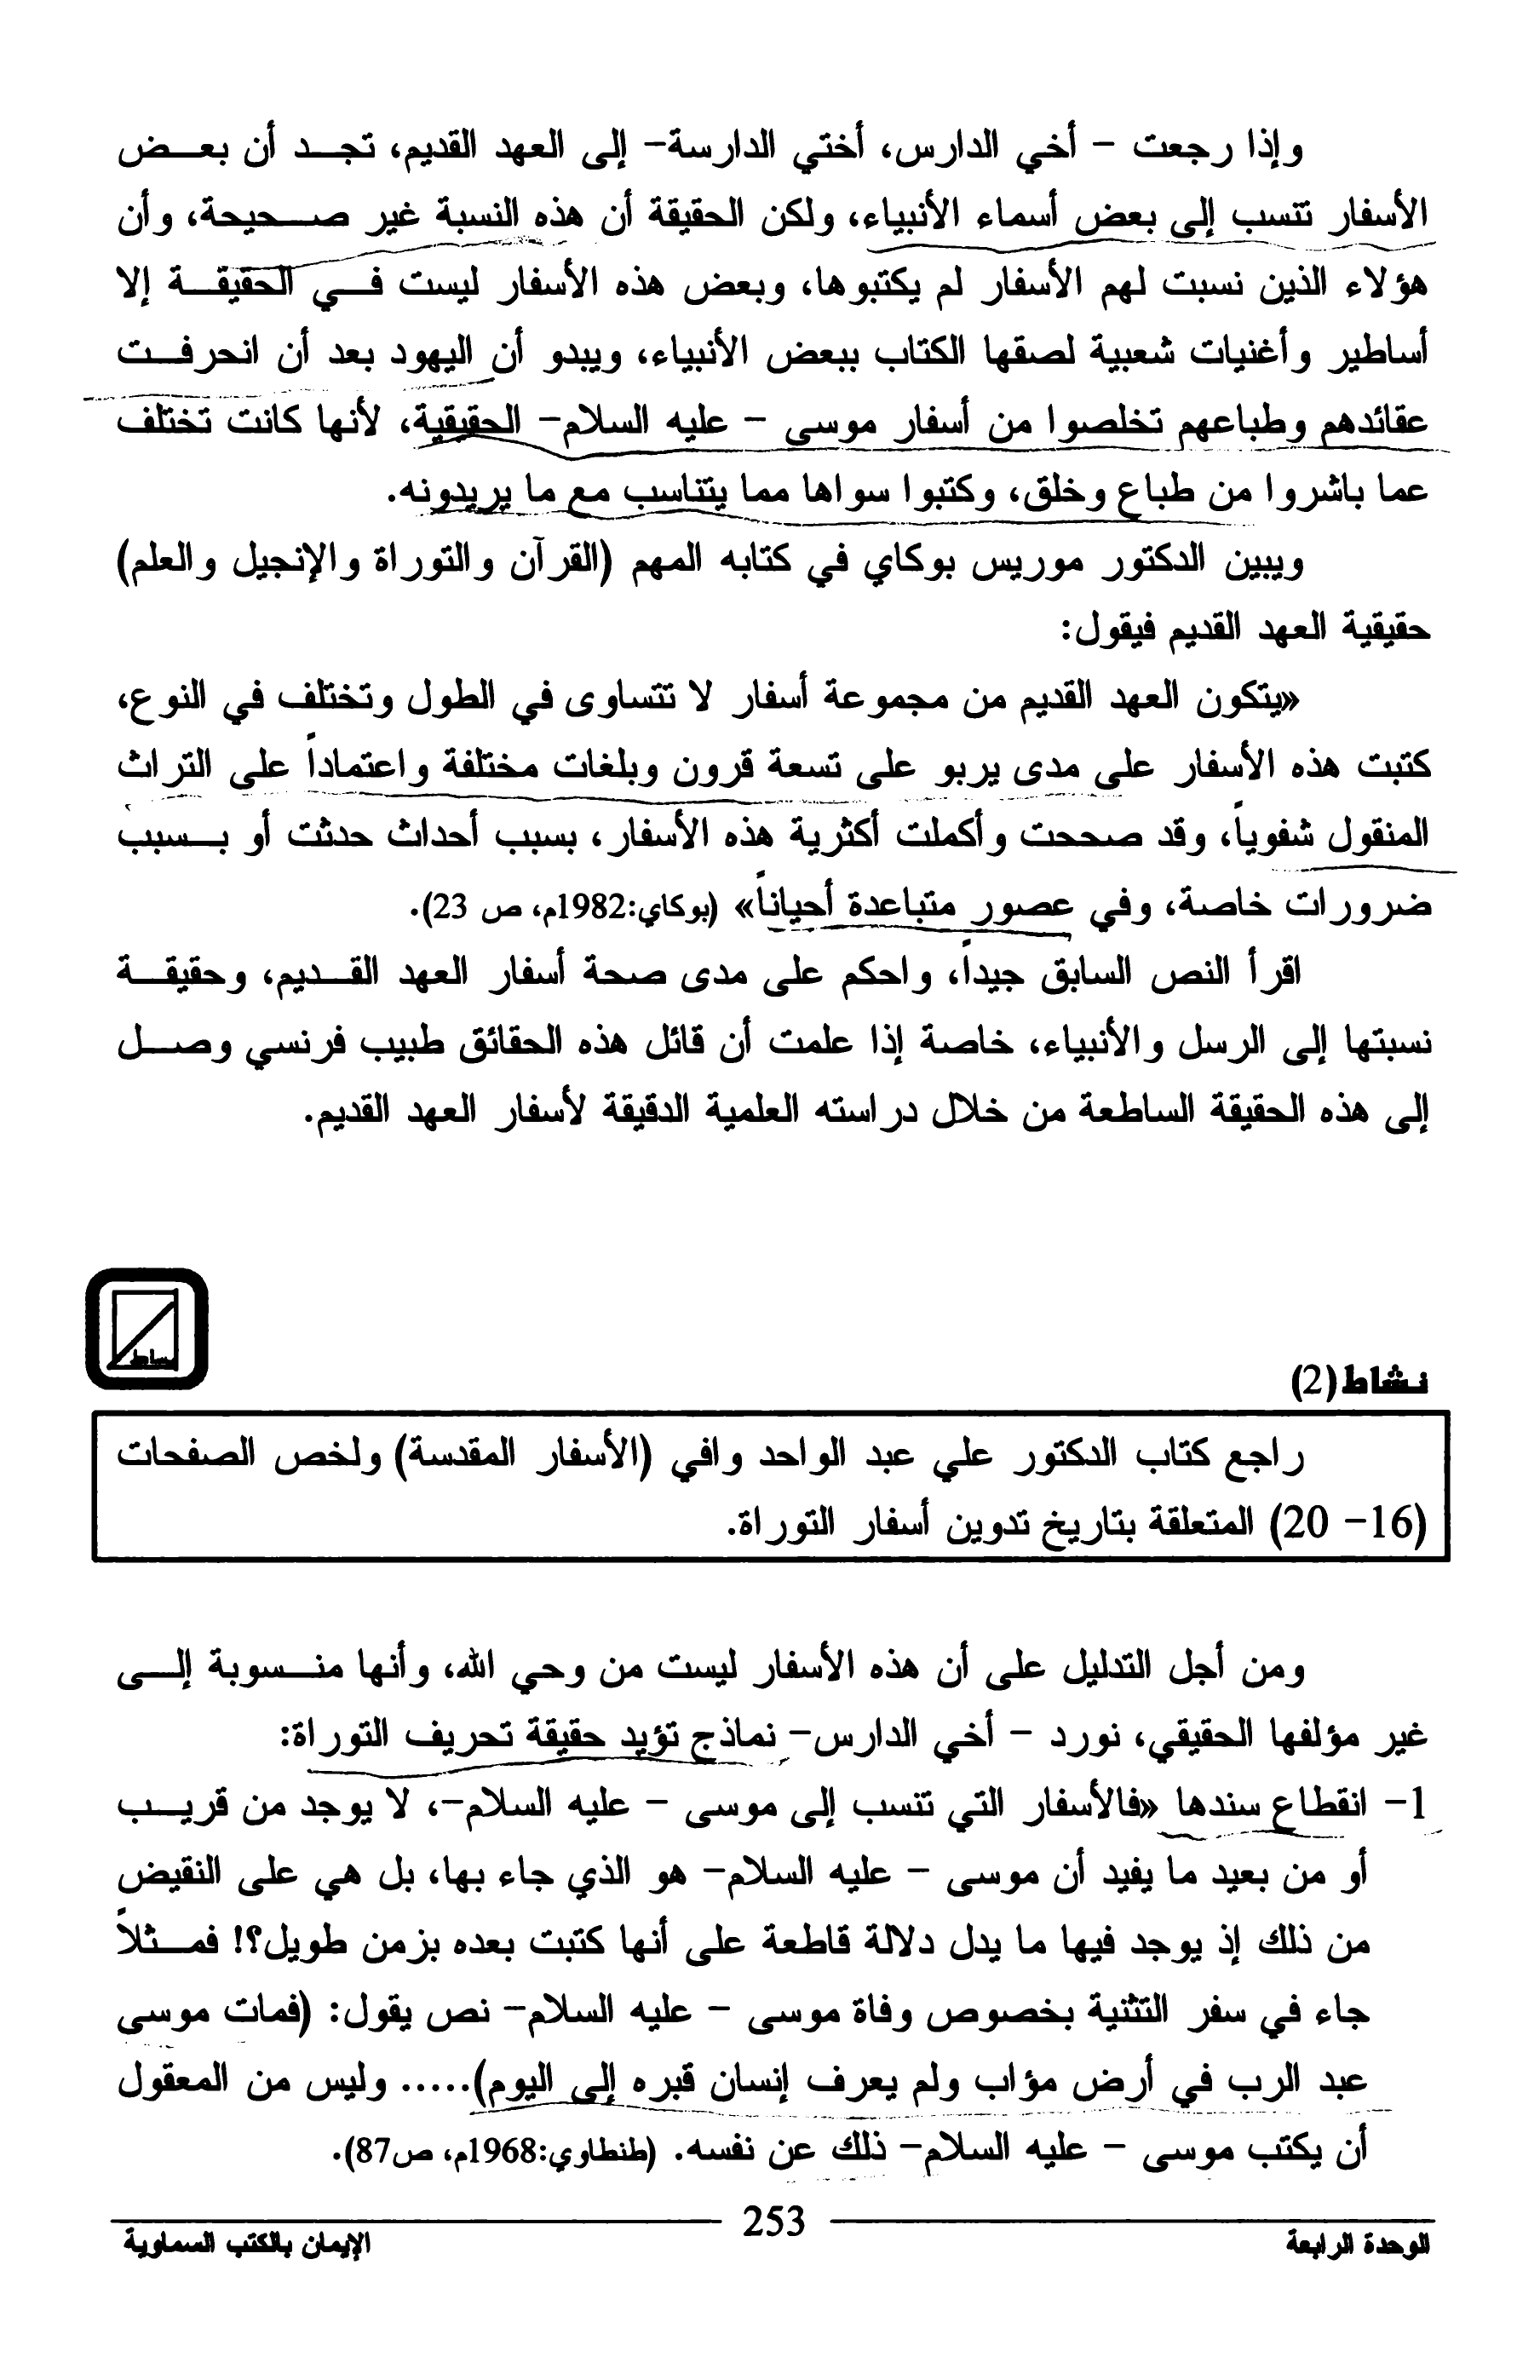 وإذا رجعت - أخي الدارس، أختي الدارسة- إلى العهد القديم، تجد أن بعض
الأسفار تنسب إلى بعض أسماء الأنبياء، ولكن الحقيقة أن هذه النسبة غير صحيحة، وأن
هؤلاء الذين نسبت لهم الأسفار لم يكتبوها، وبعض هذه الأسفار ليست في الحقيقة إلا
أساطير وأغنيات شعبية لصقها الكتاب ببعض الأنبياء، ويبدو أن اليهود بعد أن انحرفت
عقائدهم وطباعهم تخلصوا من أسفار موسى - عليه السلام- الحقيقية، لأنها كانت تختلف
عما باشروا من طباع وخلق، وكتبوا سواها مما يتناسب مع ما يريدونه.
ويبين الدكتور موريس بوكاي في كتابه المهم (القرآن والتوراة والإنجيل والعلم)
حقيقية العهد القديم فيقول:
«يتكون العهد القديم من مجموعة أسفار لا تتساوى في الطول وتختلف في النوع،
كتبت هذه الأسفار على مدى يربو على تسعة قرون وبلغات مختلفة واعتماداً على التراث
المنقول شفوياً، وقد صححت وأكملت أكثرية هذه الأسفار، بسبب أحداث حدثت أو بسبب
ضرورات خاصة، وفي عصور متباعدة أحياناً» (بوكاي:1982م، ص 23).
اقرأ النص السابق جيداً، واحكم على مدى صحة أسفار العهد القديم، وحقيقة
نسبتها إلى الرسل والأنبياء، خاصة إذا علمت أن قائل هذه الحقائق طبيب فرنسي وصل
إلى هذه الحقيقة الساطعة من خلال دراسته العلمية الدقيقة لأسفار العهد القديم.
نشاط(2)
راجع كتاب الدكتور علي عبد الواحد وافي (الأسفار المقدسة) ولخص الصفحات
(16- 20) المتعلقة بتاريخ تدوين أسفار التوراة.
ومن أجل التدليل على أن هذه الأسفار ليست من وحي الله، وأنها منسوبة إلى
غير مؤلفها الحقيقي، نورد - أخي الدارس- نماذج تؤيد حقيقة تحريف التوراة:
1- انقطاع سندها «فالأسفار التي تنسب إلى موسى - عليه السلام-، لا يوجد من قريب
أو من بعيد ما يفيد أن موسى - عليه السلام- هو الذي جاء بها، بل هي على النقيض
من ذلك إذ يوجد فيها ما يدل دلالة قاطعة على أنها كتبت بعده بزمن طويل؟! فمثلاً
جاء في سفر التثنية بخصوص وفاة موسى - عليه السلام- نص يقول: (فمات موسى
عبد الرب في أرض مؤاب ولم يعرف إنسان قبره إلى اليوم)..... وليس من المعقول
أن يكتب موسى - عليه السلام- ذلك عن نفسه. (طنطاوي:1968م، ص87).
الوحدة الرابعة 253 الإيمان بالكتب السماوية